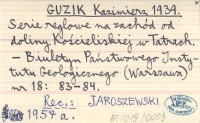 GUZIK Kazimierz 1939.
Serie reglowe na zachód od
doliny Kościeliskiej w Tatrach.
— Biuletyn Państwowego Insty-
tutu Geologicznego (Warszawa)
nr 18: 83-84.
Rec.: JAROSZEWSKI
1954 a.